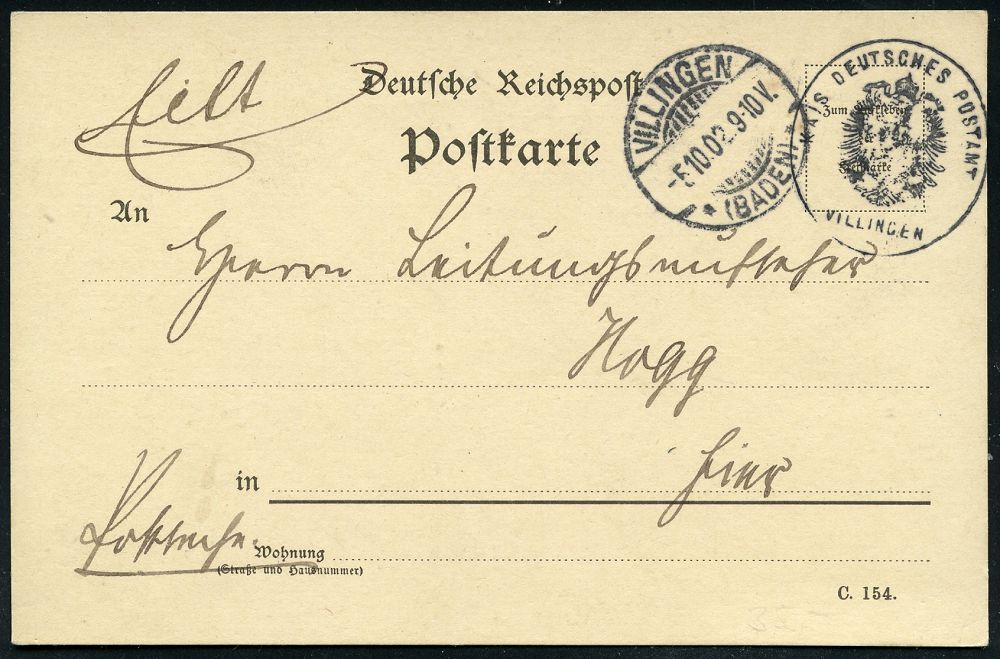 Eilt
Deutsche Reichspost
Postkarte
VILLINGEN
-5.10.02.9-10V.
* (BADEN) *
KAIS. DEUTSCHES POSTAMT
VILLINGEN
Zum Aufkleben
der
Freimarke
An
Herrn Leitungsaufseher
Hogg
in hier
Postsache.
Wohnung
(Straße und Hausnummer)
C. 154.